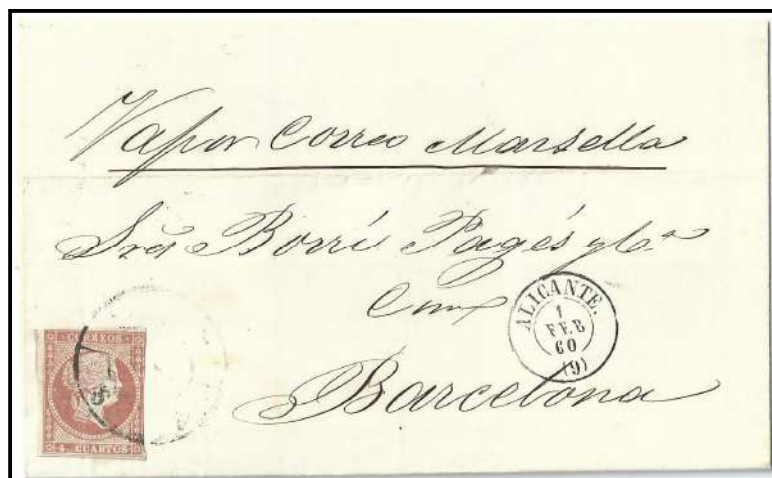 Vapor Correo Marsella
Sres Borrí Pagés y Ca
ALICANTE.
1
FEB
60
(9)
Barcelona
CORREOS
4 CUARTOS